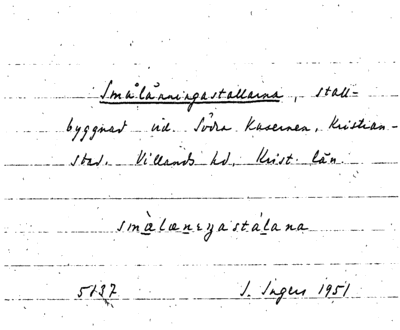 Smålänningastallarna, stall-
byggnad vid Södra Kasernen, Kristian-
stad. Villands hd, Krist. län.
smålæneŋastálana
5137 I. Ingers 1951